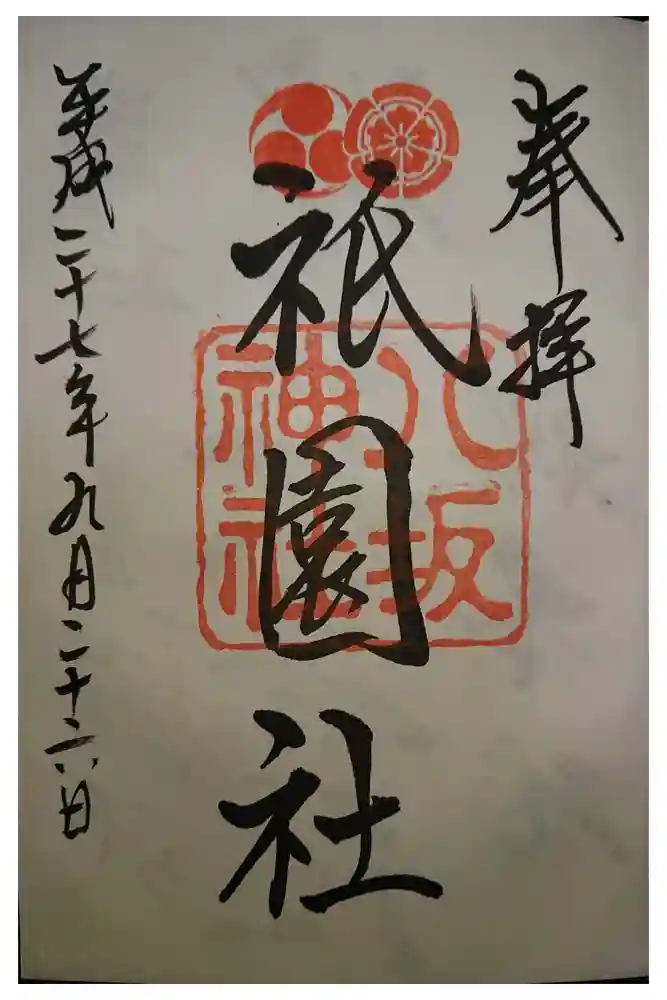 奉拝
八坂
神社
祇園社
平成二十七年九月二十六日